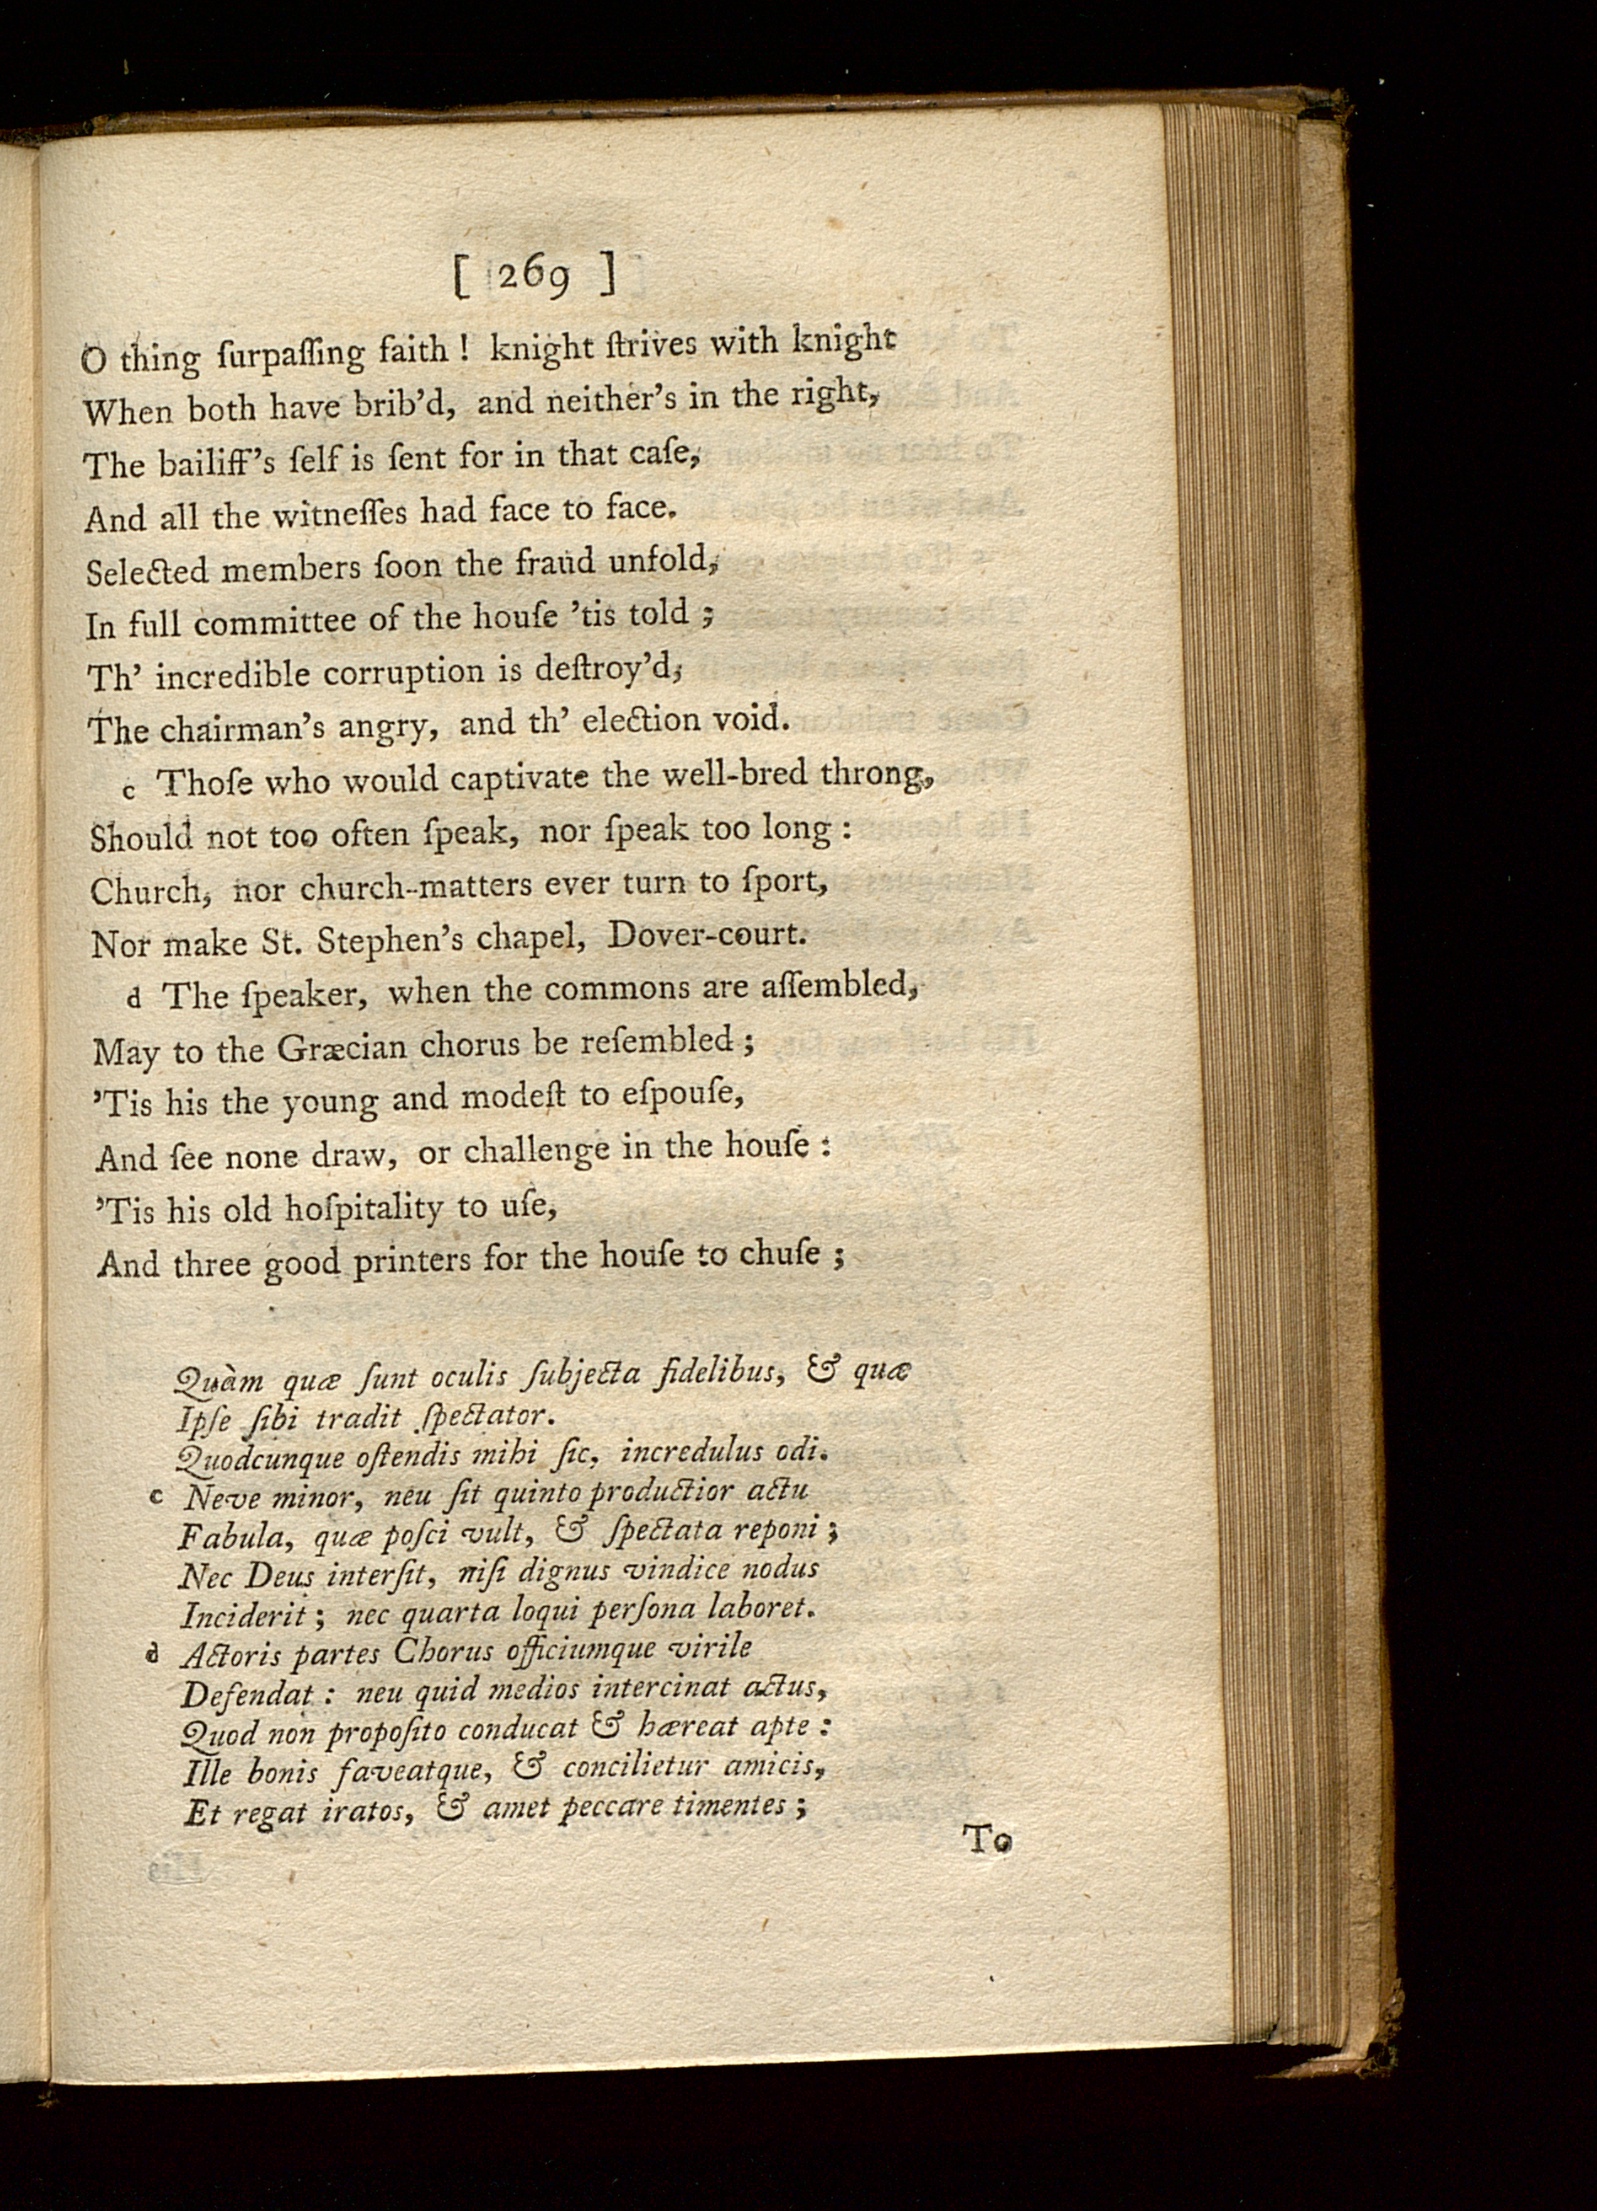 [ 269 ]
O thing ſurpaſſing faith ! knight ſtrives with knight
When both have brib'd, and neither's in the right,
The bailiff's ſelf is ſent for in that caſe,
And all the witneſſes had face to face.
Selected members ſoon the fraud unfold,
In full committee of the houſe 'tis told ;
Th' incredible corruption is deſtroy'd,
The chairman's angry, and th' election void.
c Thoſe who would captivate the well-bred throng,
Should not too often ſpeak, nor ſpeak too long :
Church, nor church-matters ever turn to ſport,
Nor make St. Stephen's chapel, Dover-court.
d The ſpeaker, when the commons are aſſembled,
May to the Græcian chorus be reſembled ;
'Tis his the young and modeſt to eſpouſe,
And ſee none draw, or challenge in the houſe :
'Tis his old hoſpitality to uſe,
And three good printers for the houſe to chuſe ;
Quàm quæ ſunt oculis ſubjecta fidelibus, & quæ
Ipſe ſibi tradit ſpectator.
Quodcunque oſtendis mihi ſic, incredulus odi.
c Neve minor, neu ſit quinto productior actu
Fabula, quæ poſci vult, & ſpectata reponi ;
Nec Deus interſit, niſi dignus vindice nodus
Inciderit ; nec quarta loqui perſona laboret.
d Actoris partes Chorus officiumque virile
Defendat : neu quid medios intercinat actus,
Quod non propoſito conducat & hæreat apte :
Ille bonis faveatque, & concilietur amicis,
Et regat iratos, & amet peccare timentes ;
To